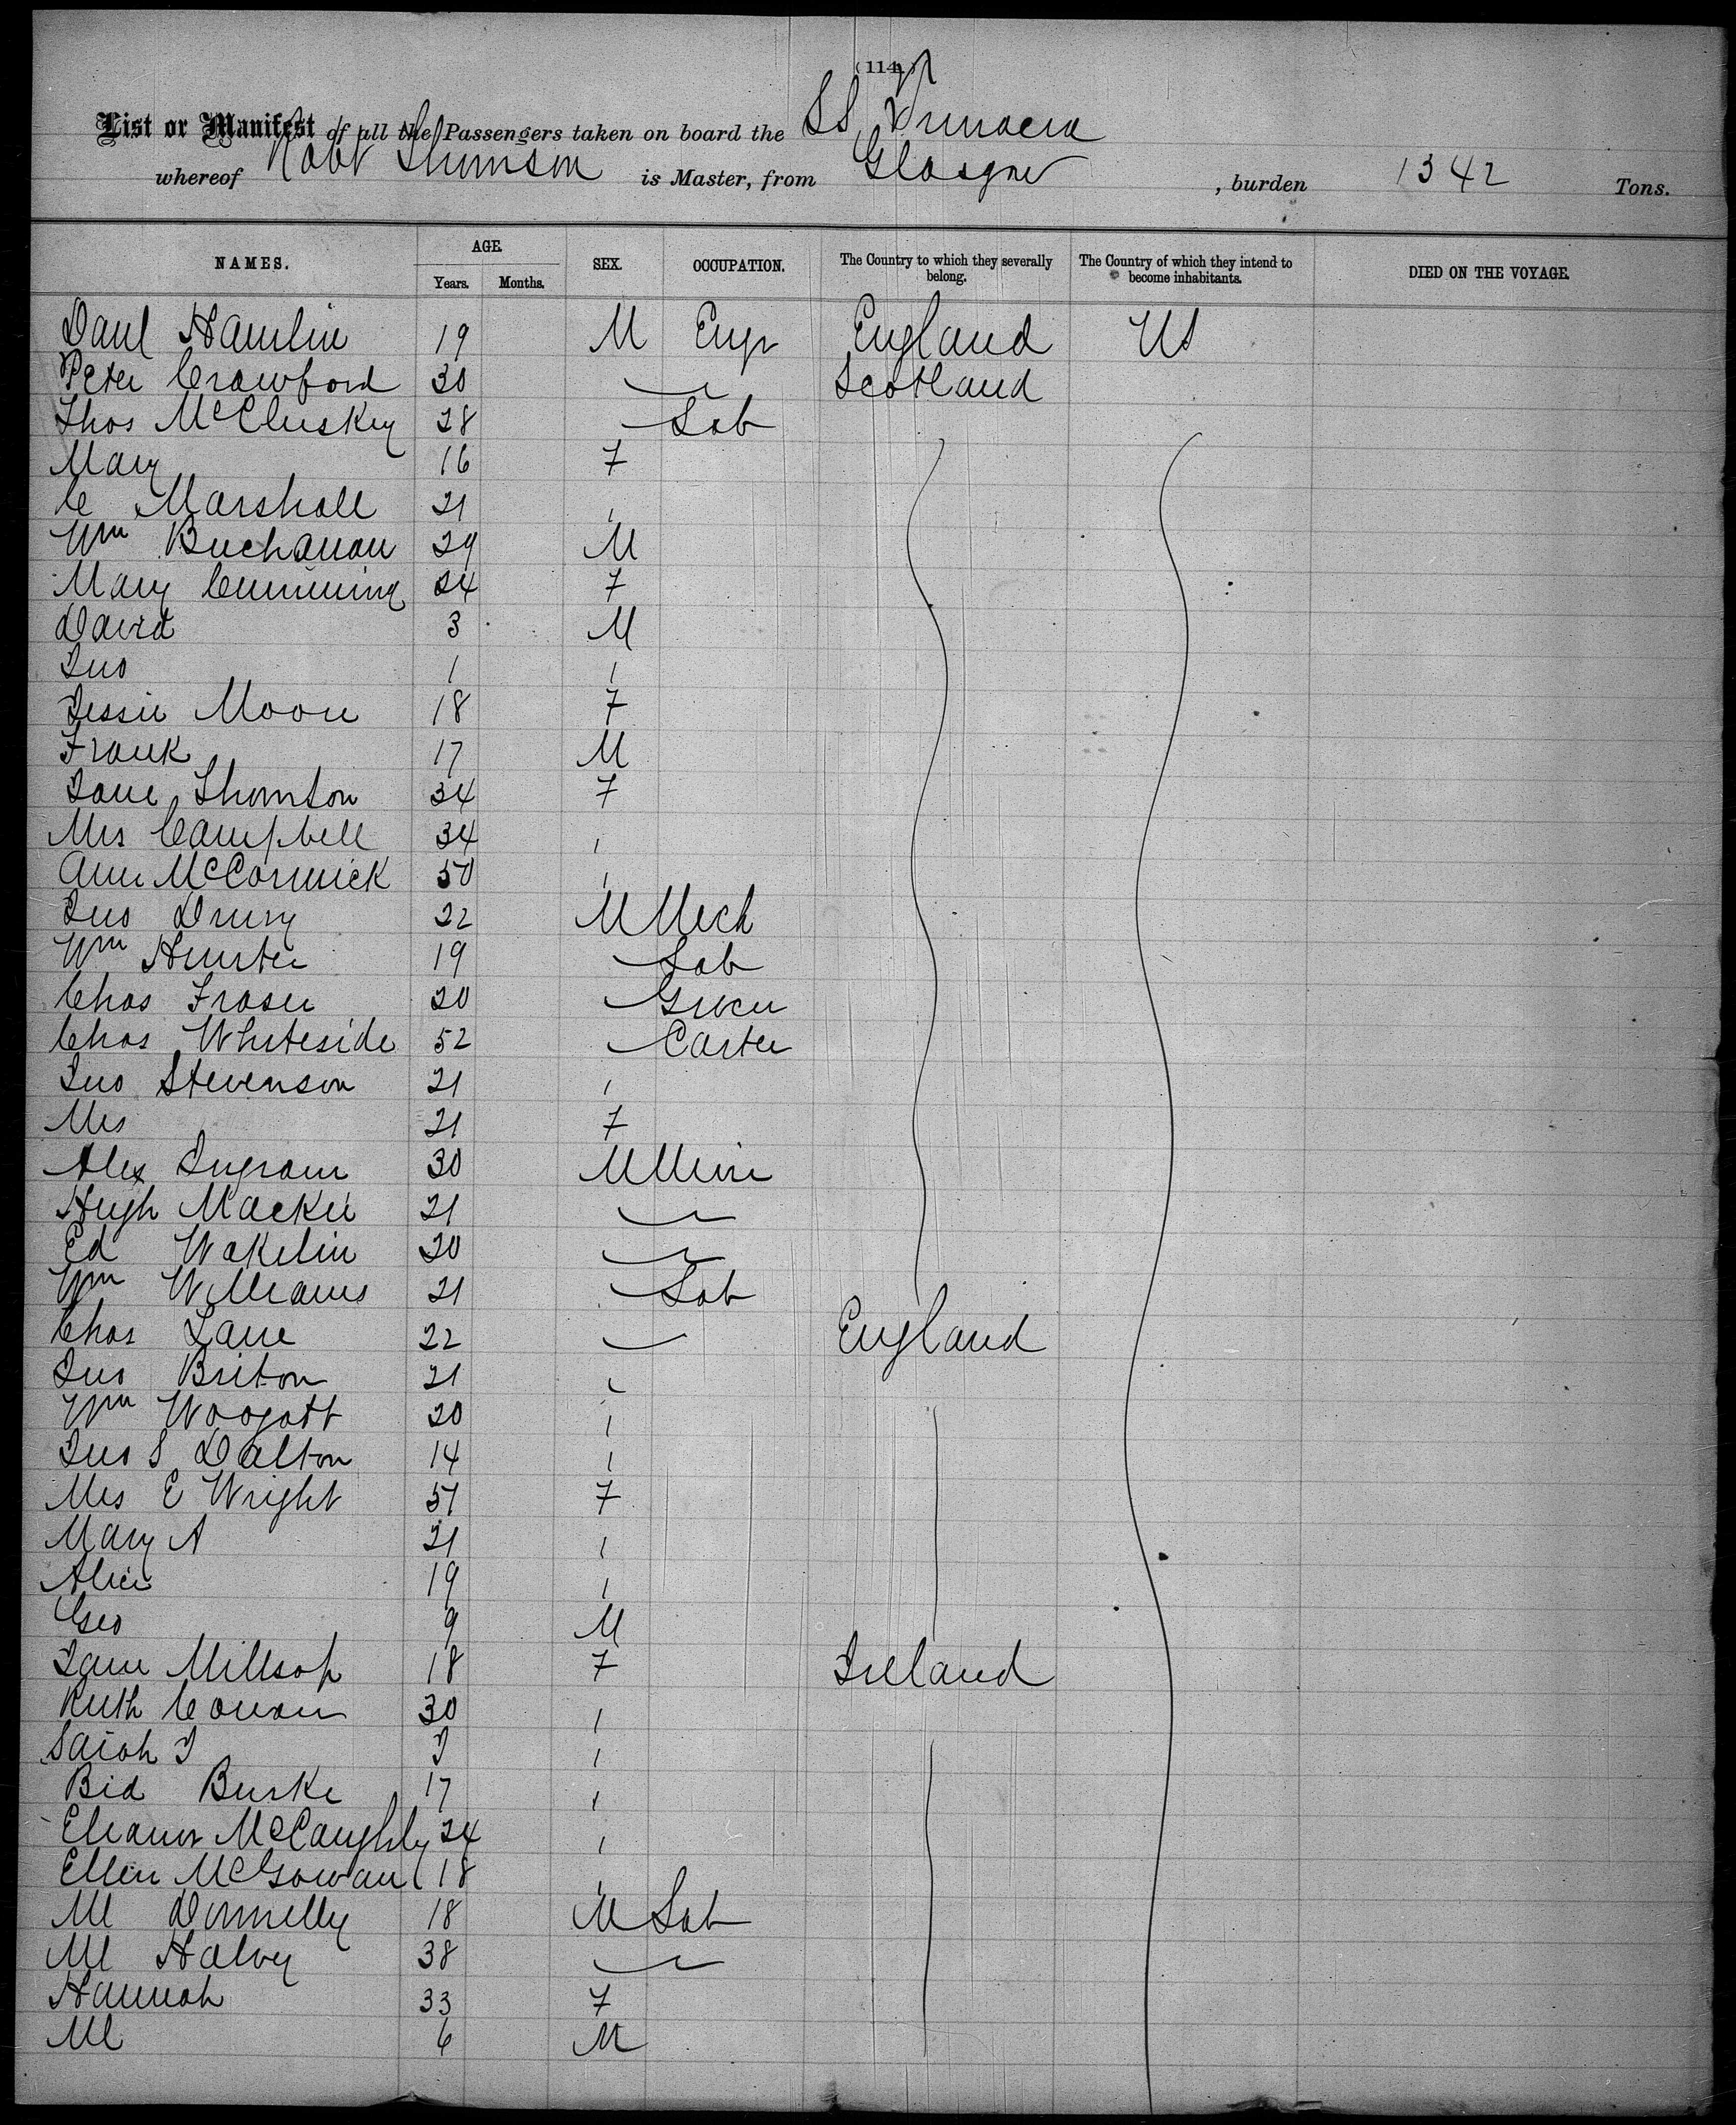 (114)
List or Manifest of all the Passengers taken on board the SS
whereof Robt Thomson is Master, from Glasgow, burden 1342 Tons.
NAMES. AGE. Years. Months. SEX. OCCUPATION. The Country to which they severally belong. The Country of which they intend to become inhabitants. DIED ON THE VOYAGE.
Danl Hamlin 19 M Engr England US
Peter Crawford 30 Scotland
Thos McCluskey 28 Lab
Mary 16 F
C Marshall 21
Wm Buchanan 29 M
Mary Cumming 24 F
David 3 M
Jno 1
Jessie Moore 18 F
Frank 17 M
Jane Thomson 34 F
Mrs Campbell 34
Ann McCormick 50
Jno Drury 22 M Mech
Wm Hunter 19 Lab
Chas Fraser 20 Grocer
Chas Whiteside 52 Carter
Jno Stevenson 21
Mrs 21 F
Alex Ingram 30 M Min
Hugh Mackie 21
Ed Wakelin 20
Wm Williams 21 Lab
Chas Lane 22 England
Jno Briton 21
Wm Woogatt 20
Jno S Dalton 14
Mrs E Wright 51 F
Mary A 21
Alice 19
Geo 9 M
Jane Millsop 18 F Ireland
Ruth Cowan 30
Sarah J
Bid Burke 17
Eleanor McCaughly 24
Ellen McGowan 18
Ml Donnelly 18 M Lab
Ml Halvey 38
Hannah 33 F
Ml 6 M